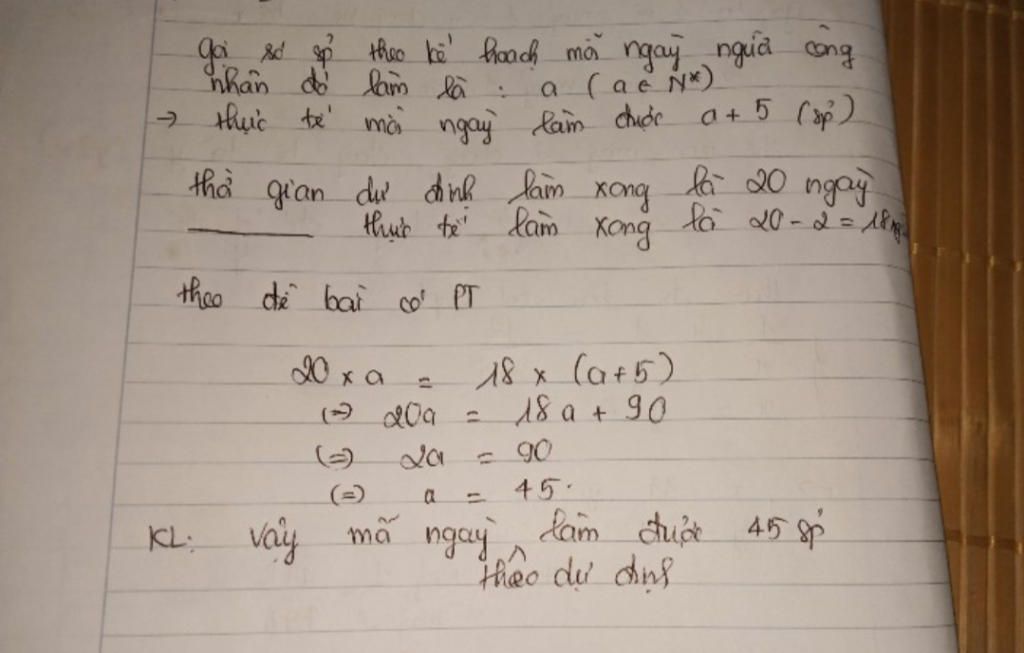 gọi số sp theo kế hoạch mỗi ngày người công
nhân đó làm là : a ( a ∈ N*)
→ thực tế mỗi ngày làm được a + 5 (sp)
thời gian dự định làm xong là 20 ngày
——— thực tế làm xong là 20 - 2 = 18 ng
theo đề bài có PT
20 × a = 18 × (a+5)
(=) 20a = 18a + 90
(=) 2a = 90
(=) a = 45.
KL: Vậy mỗi ngày ^ làm được 45 sp
theo dự định